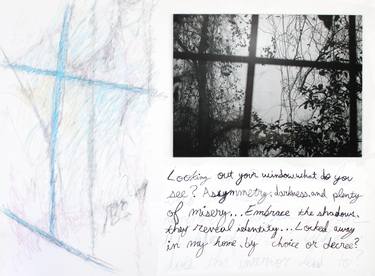 Looking out your window,what do you
see? Assymmetry, darkness, and plenty
of misery... Embrace the shadows.
they reveal identity... Locked away
in my home, by choice or decree?